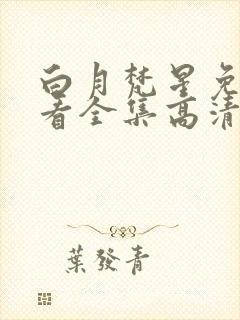 白月梵星免
看全集高清
葉發青